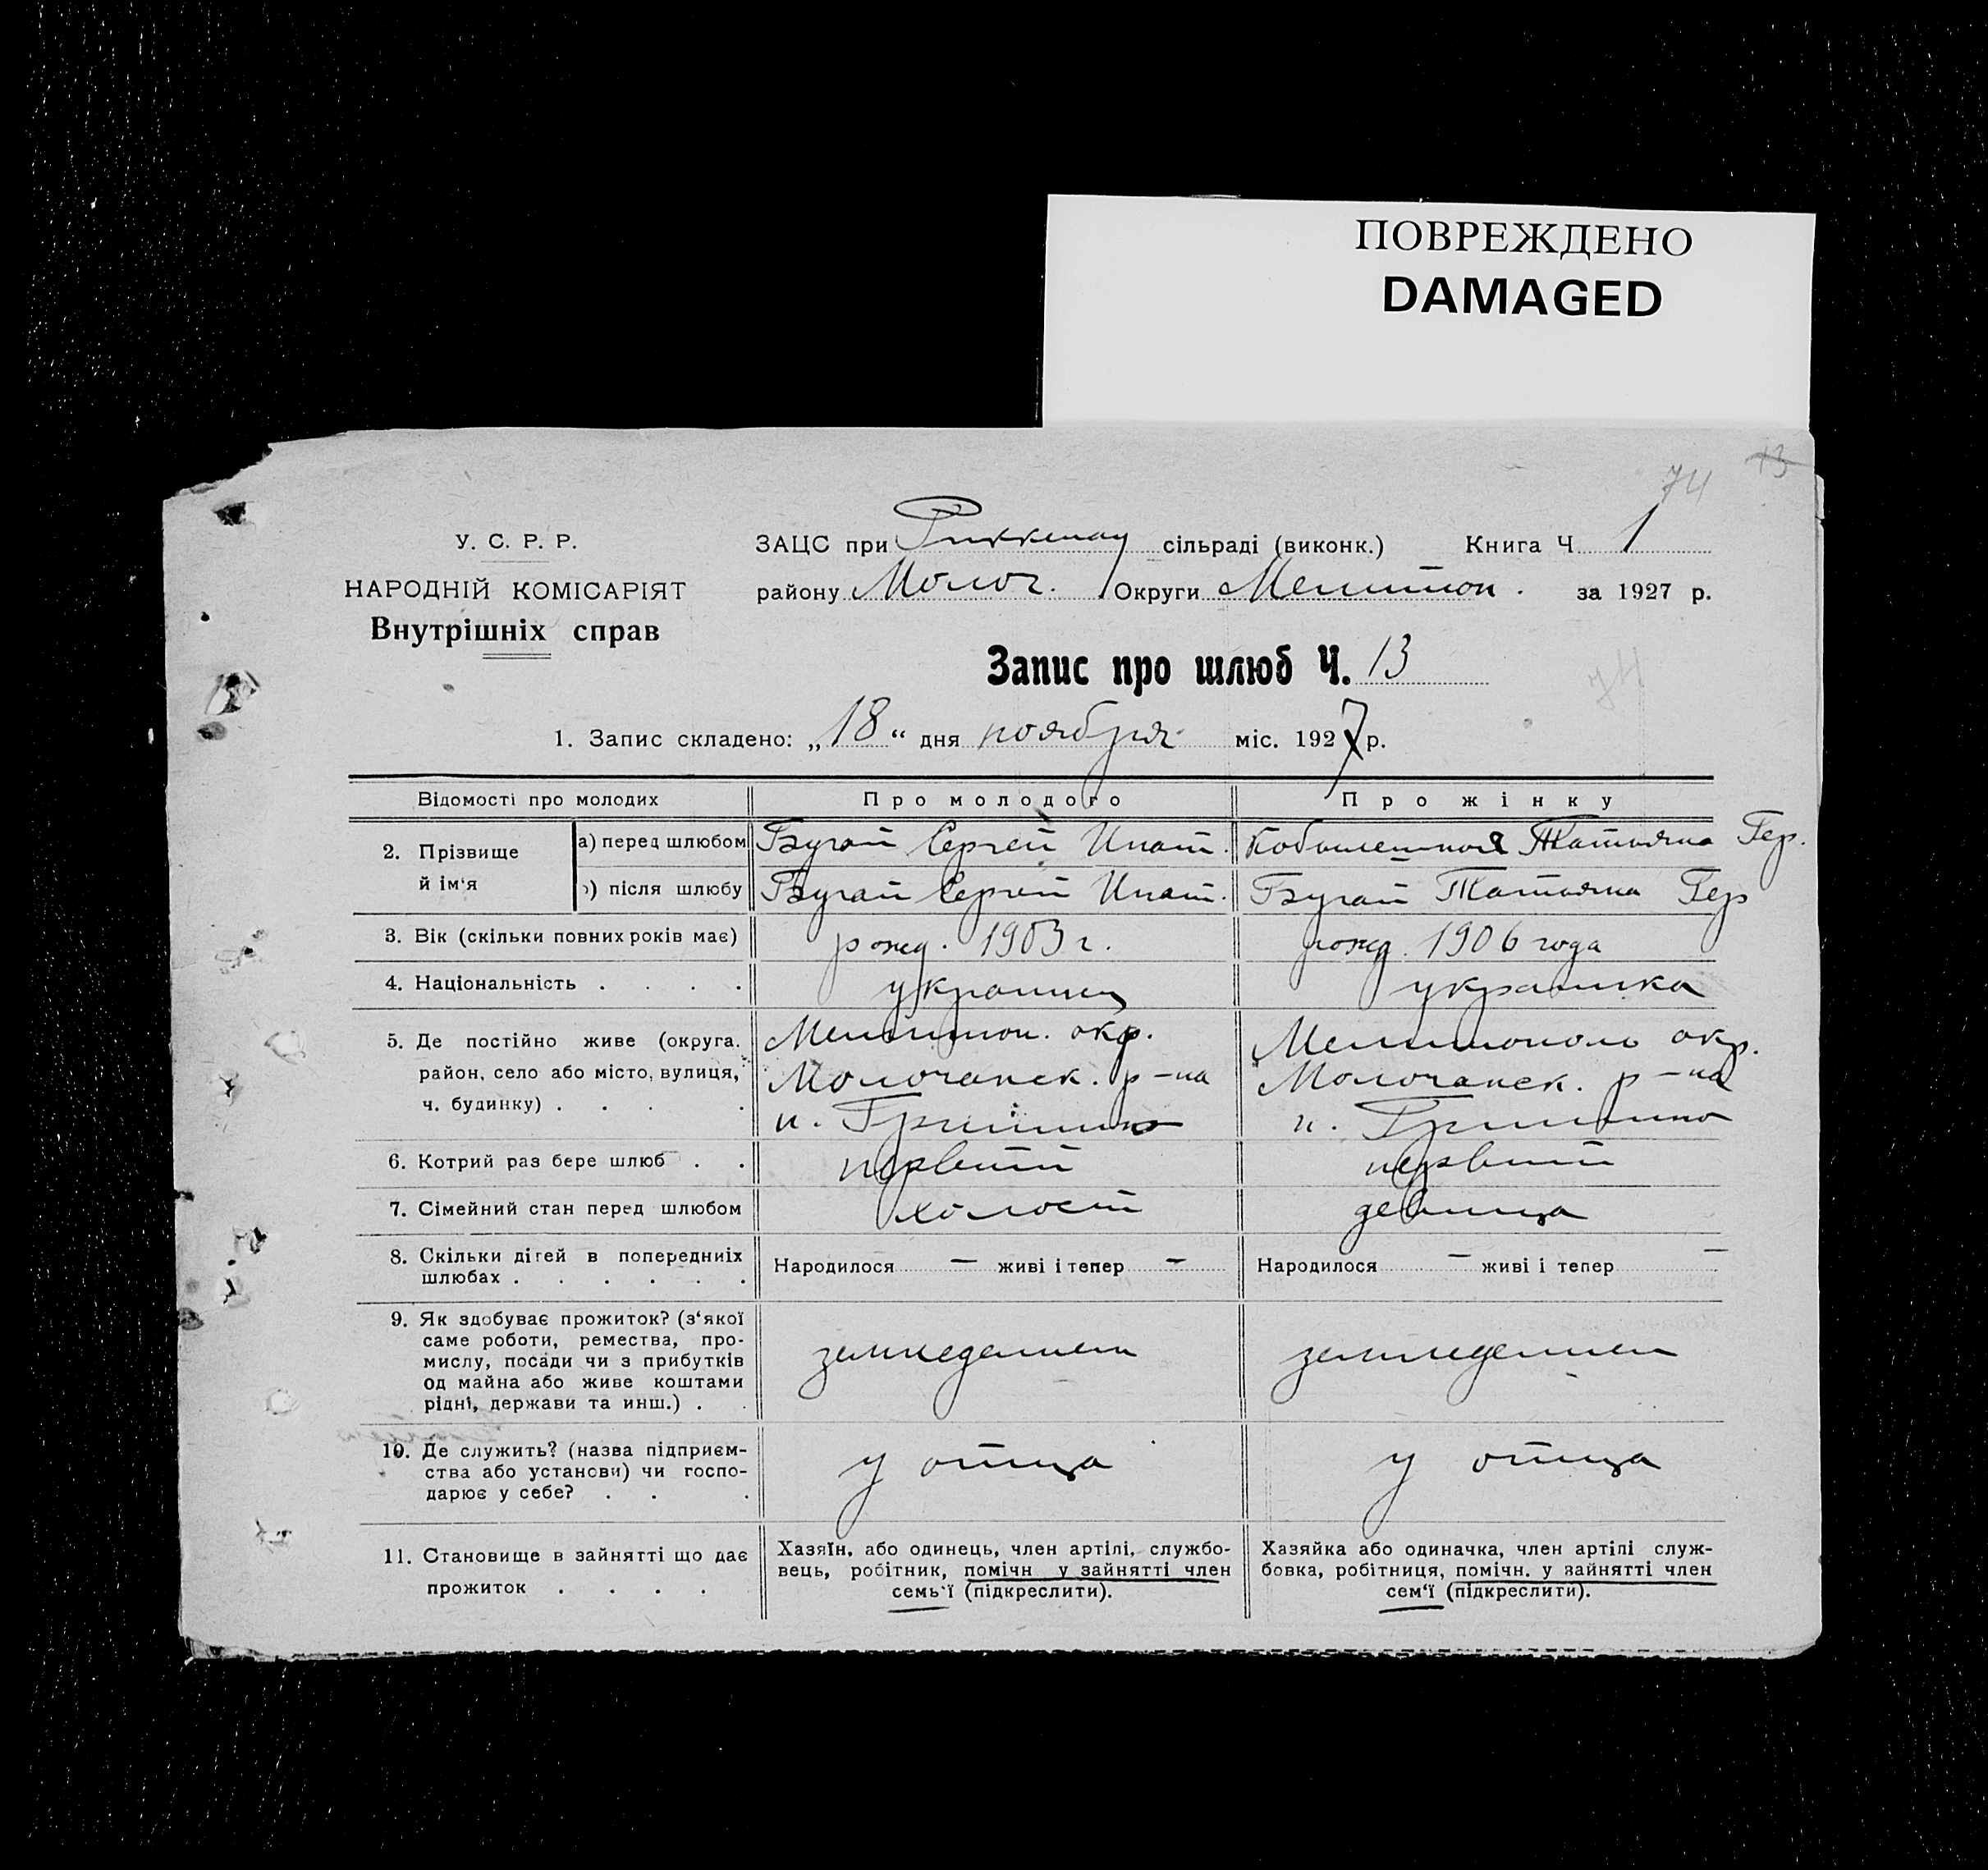 ПОВРЕЖДЕНО
DAMAGED
13
74
У. С. Р. Р.
НАРОДНІЙ КОМІСАРІЯТ
Внутрішніх справ
ЗАЦС при Риккенау сільраді (виконк.) Книга Ч. 1
району Молоч. Округи Мелитоп. за 1927 р.
Запис про шлюб Ч. 13
74
1. Запис складено: „18“ дня ноября міс. 1927 р.
Відомості про молодих Про молодого Про жінку
2. Прізвище й ім'я а) перед шлюбом Бугай Сергей Ипат. Татьяна Гер.
б) після шлюбу Бугай Сергей Ипат. Бугай Татьяна Гер
3. Вік (скільки повних років має) рожд. 1903 г. рожд. 1906 года
4. Національність . . . . украинец украинка
5. Де постійно живе (округа. район, село або місто, вулиця, ч. будинку) . . . .
Мелитоп. окр.
Молочанск. р-на
п. Гришино
Мелитополь окр.
Молочанск. р-на
п. Гришино
6. Котрий раз бере шлюб . . первый первый
7. Сімейний стан перед шлюбом холост девица
8. Скільки дітей в попередниіх шлюбах . . . . . . Народилося — живі і тепер — Народилося — живі і тепер —
9. Як здобуває прожиток? (з'якої
саме роботи, ремества, про-
мислу, посади чи з прибутків
од майна або живе коштами
рідні, держави та инш.) . .
земледелием земледелием
10. Де служить? (назва підприєм-
ства або установи) чи госпо-
дарює у себе? . . .
у отца у отца
11. Становище в зайнятті що дає
прожиток . . . .
Хазяїн, або одинець, член артілі, службо-
вець, робітник, помічн у зайнятті член
семь'ї (підкреслити).
Хазяйка або одиначка, член артілі служ-
бовка, робітниця, помічн. у зайнятті член
сем'ї (підкреслити).